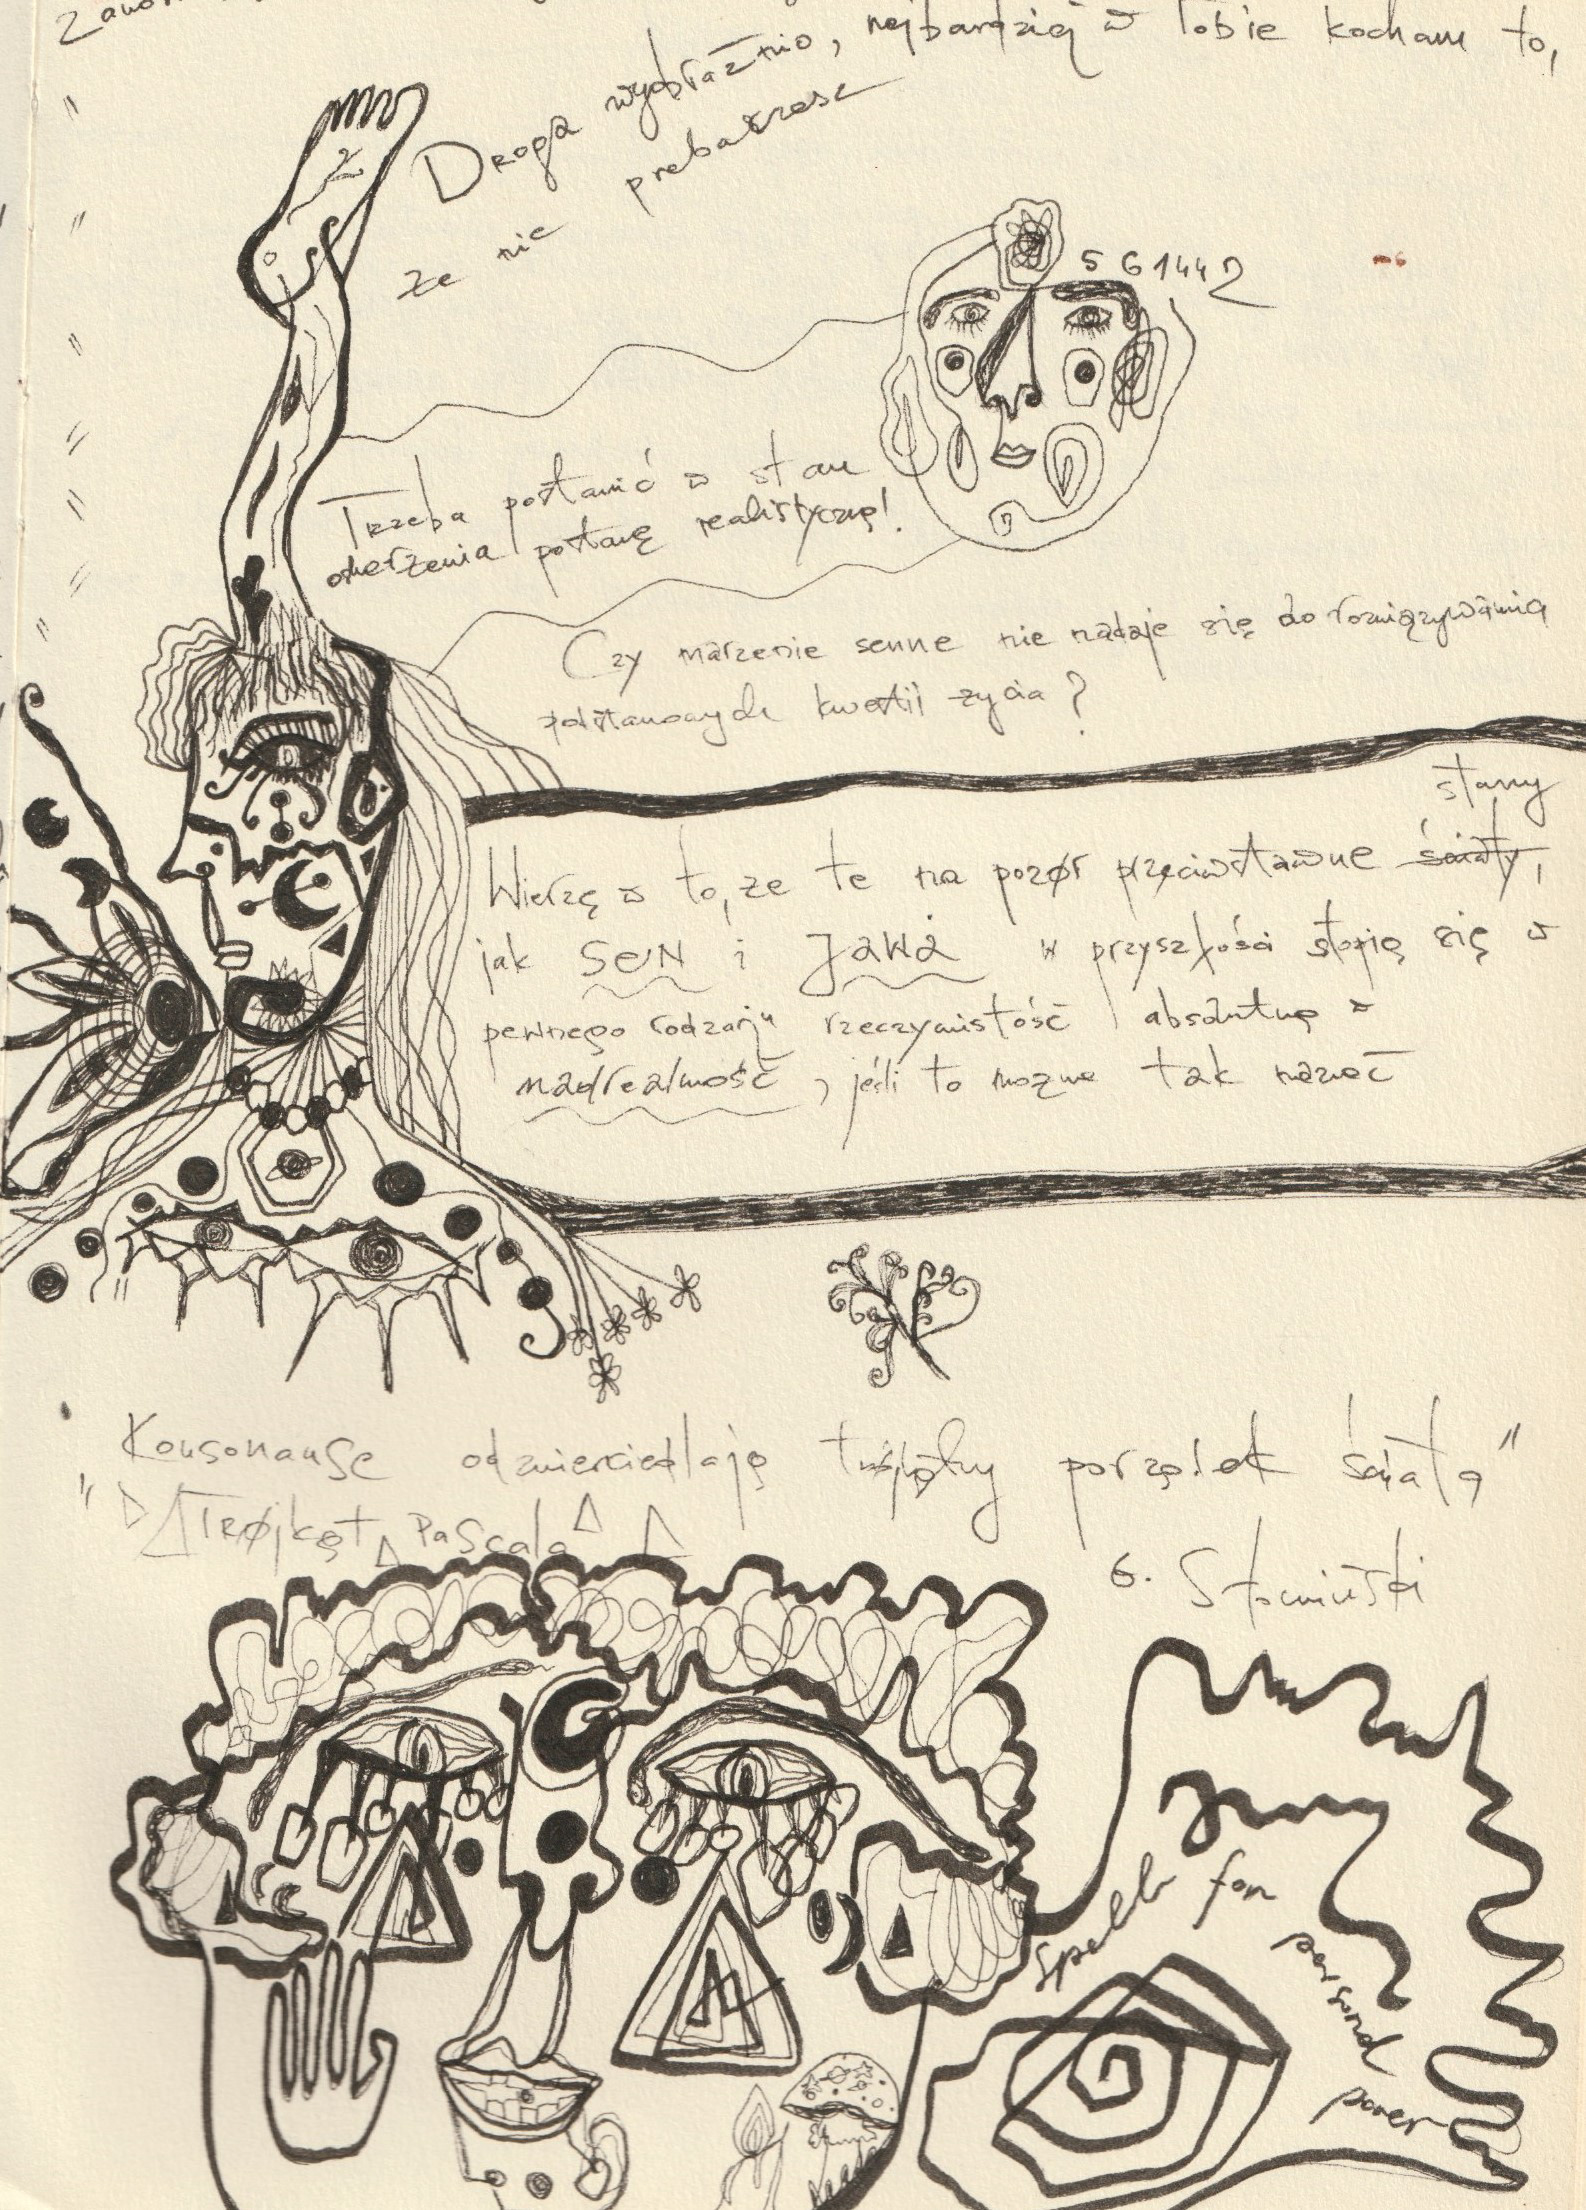 Droga wyobraźnio, najbardziej w Tobie kocham to,
że nie przebaczasz
561442
Trzeba postawić w stan
oskarżenia postawę realistyczną!
Czy marzenie senne nie nadaje się do rozwiązywania
podstawowych kwestii życia?
stany
Wierzę w to, że te na pozór przeciwstawne światy,
jak SEN i JAWA w przyszłości stopią się w
pewnego rodzaju rzeczywistość absolutną w
nadrealność, jeśli to można tak nazwać
Konsonanse odzwierciedlają porządek świata"
"Trójkąt Pascala
spell for
personal
power